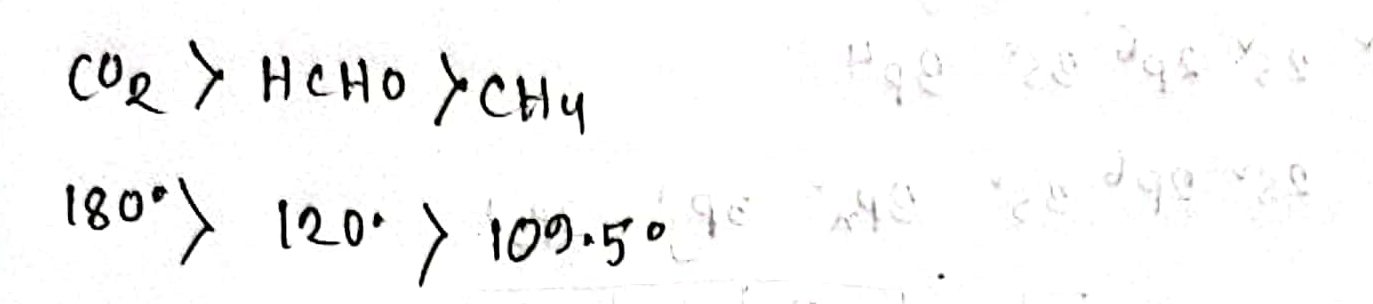 CO2 > HCHO > CH4
180° > 120° > 109.5°